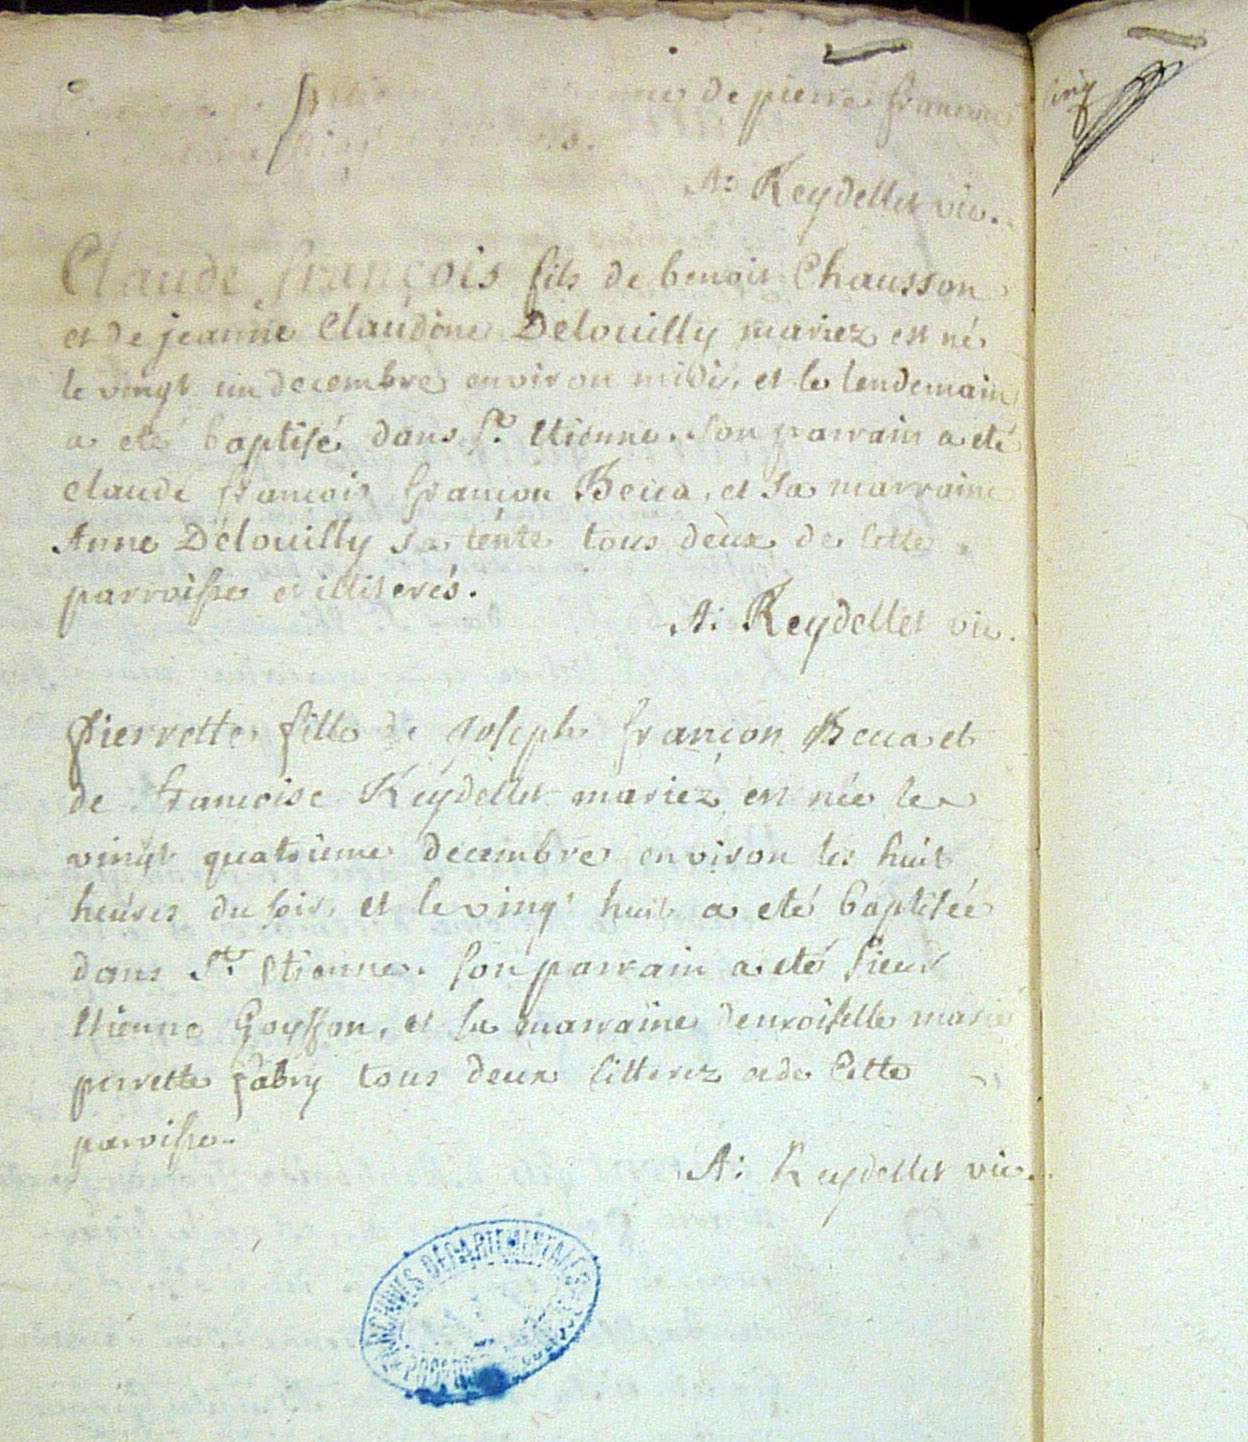 de pierre françon
A: Reydellet vic.
Claude françois fils de benoit Chausson
et de jeanne Claudine Delouilly mariez est né
le vingt un decembre environ midi, et le lendemain
a eté baptisé dans St. Etienne. son parrain a eté
claude francois françon Becca, et sa marraine
Anne Délouilly sa tente tous deux de cette
parroisse et illiterés.
A: Reydellet vic.
pierrette fille de Joseph françon Becca et
de francoise Reydellet mariéz est née le
vingt quatrieme decembre environ les huit
heures du soir, et le vingt huit a eté baptisée
dans St. Etienne. son parrain a eté sieur
Etienne Goysson, et sa marraine demoiselle marie
perrette fabry tous deux litterez et de cette
paroisse.
A: Reydellet vic.
ARCHIVES DÉPARTEMENTALES